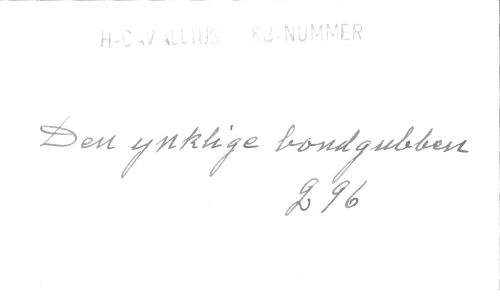 H-CAVALLIUS KB-NUMMER
Den ynklige bondgubben
296